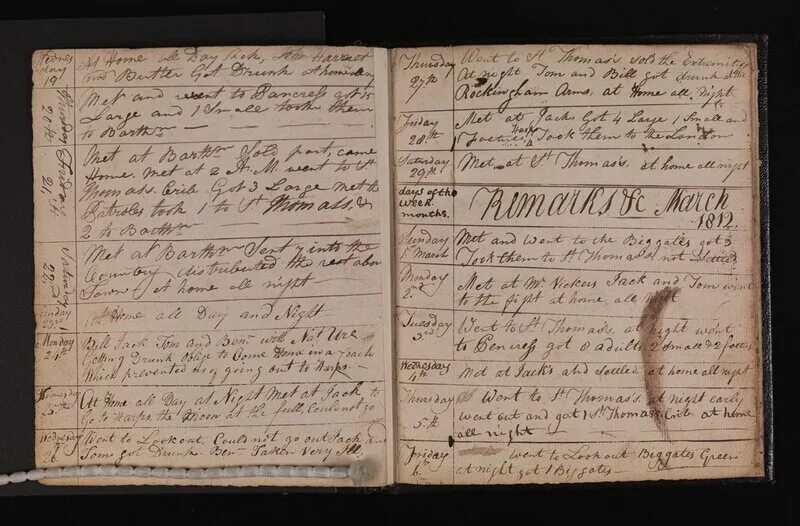 Wednes
day
19
At Home all Day Sick,
Butler Got Drunk at home all
Thursday
20th
Met and went to Pancress got 15
Large and 1 Small took them
to Barthw
Friday
21st
Met at Barthw Sold part, came
Home. Met at 2 A.M. went to St
Thomass. Crib Got 3 Large met the
Patroles took 1 to St Thomass, &
2 to Barthw
Saturday
22
Met at Barthw Sent 7 into the
Country distributed the rest about
Town, at home all night
23rd
At Home all Day and Night
Monday
24th
Bill Jack Tom and Benn with Nat Ure
Getting Drunk Oblige to Come Home in a Coach
Which prevented us going out to Harps
25th
At Home all Day at Night Met at Jack to
Go to Harps the Moon at the full, Could not go
Wednesday
26
Went to Look out, Could not go out Jack and
Tom got Drunk. Benn Taken Very Ill
Thursday
27th
Went to St Thomas's sold the Extremities
At night Tom and Bill got drunk at the
Rockingham Arms, at home all night
Friday
28th
Met at Jack Got 4 Large 1 Small and
Took them to the London
Saturday
29th
Met at St Thomas's at home all night
days of the
week
months.
Remarks &c March
1812.
Sunday
1st March
Met and Went to the Big gates got 3
Took them to St Thomas's not settled
Monday
2nd
Met at Mr Vickers Jack and Tom went
to the fight at home all night
Tuesday
3rd
Went to St Thomas's, at night went
to Pencress got 8 adults, 2 small & 2 foetus
Wednesday
4th
Met at Jack's and settled, at home all night
Thursday
5th
Went to St Thomas's at night early
went out and got 1 St Thomas's Crib. at home
all night
Friday
6th
went to Look out Big gates Green
at night got 1 Big gates